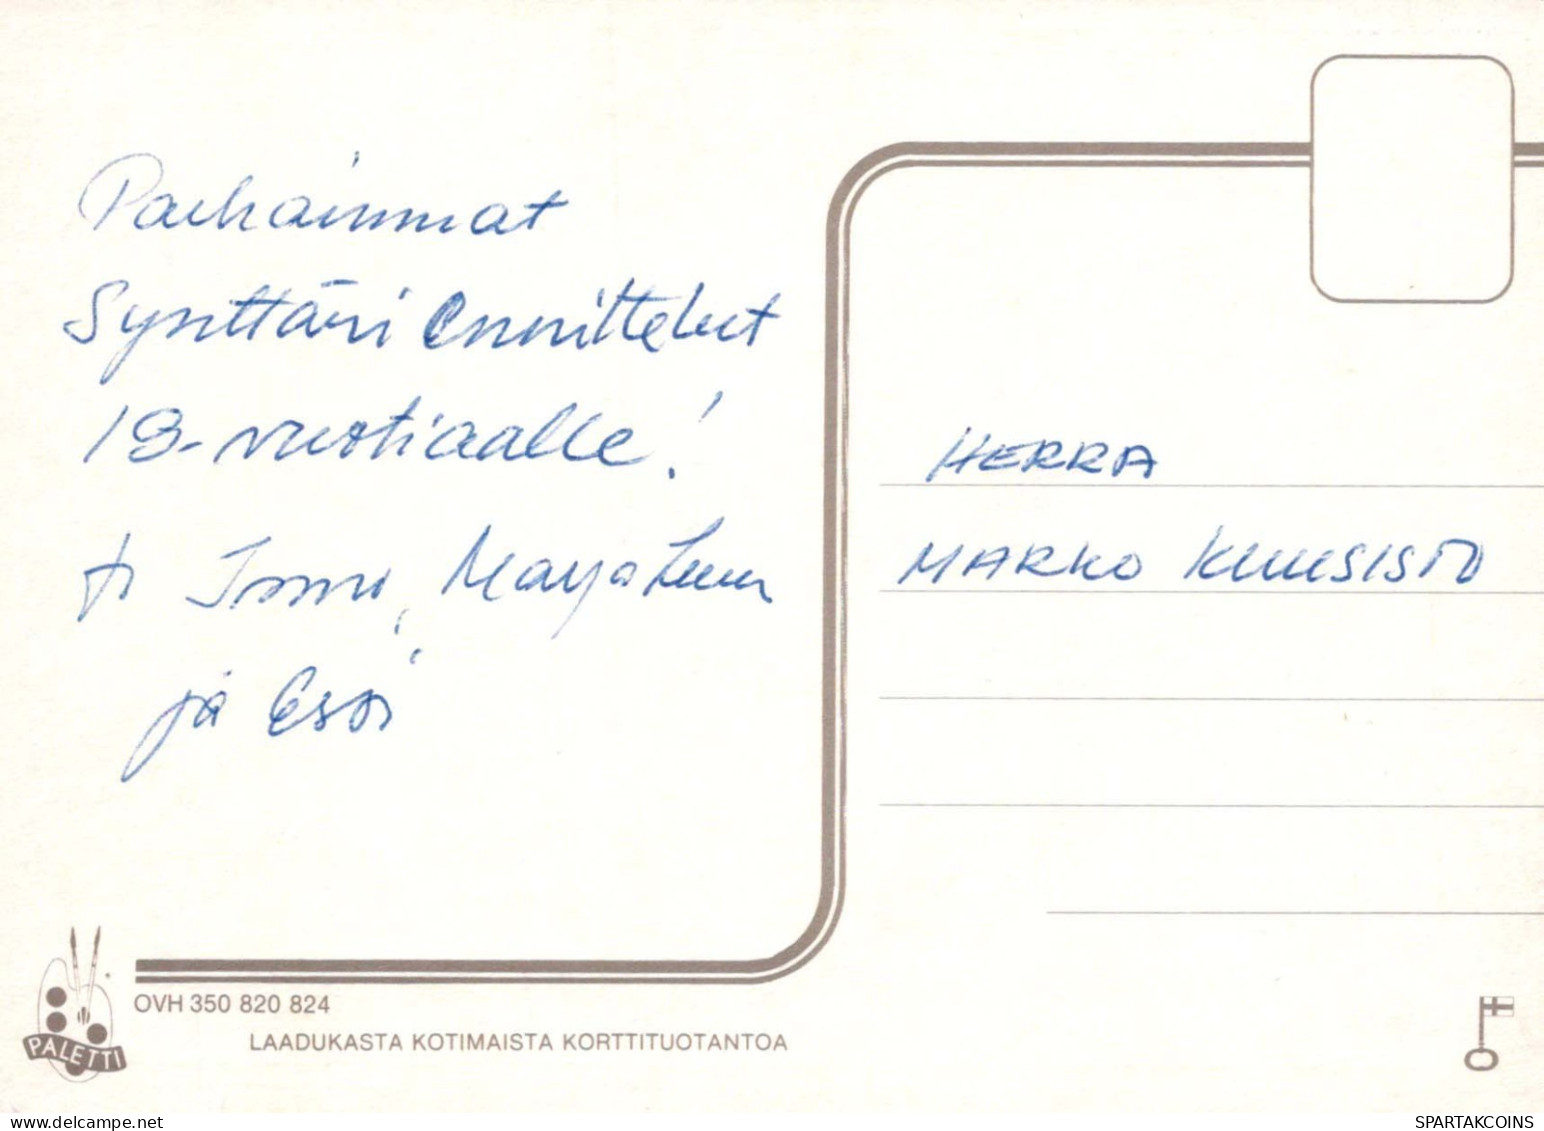 Parhaimmat
Synttäri Onnittelut
18-vuotiaalle!
t: Ismo, Marja Leena
ja Esa
HERRA
MARKO KUUSISTO
PALETTI
OVH 350 820 824
LAADUKASTA KOTIMAISTA KORTTITUOTANTOA
www.delcampe.net
SPARTAKCOINS